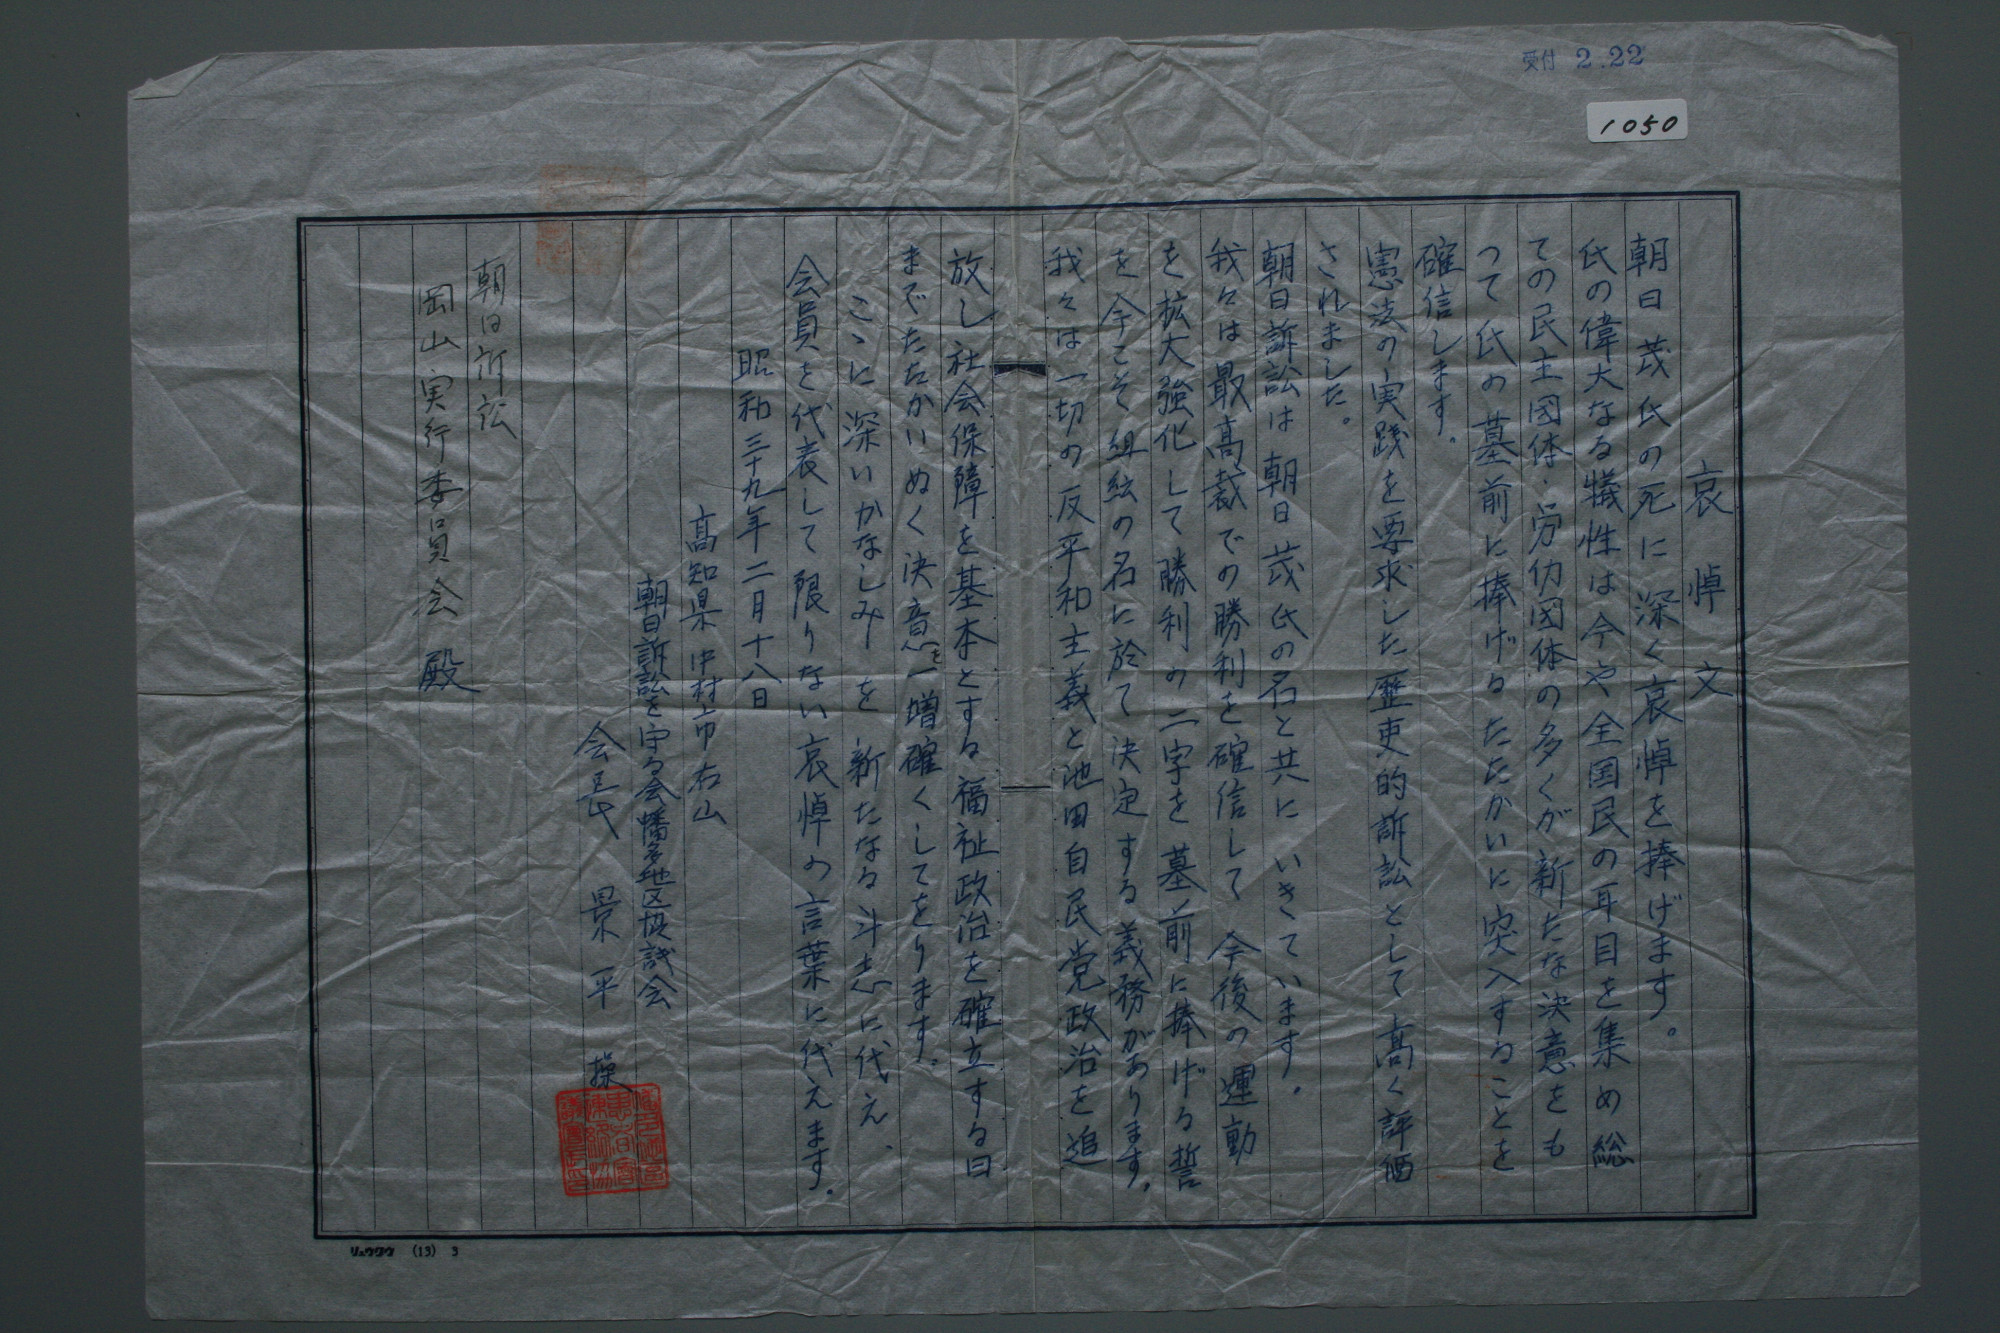 受付 2.22
1050
哀悼文
朝日茂氏の死に深く哀悼を捧げます。
氏の偉大なる犠性は今や全国民の耳目を集め総
ての民主団体・労仂団体の多くが新たな決意をも
って氏の墓前に捧げるたたかいに突入することを
確信します。
憲法の実践を要求した歴史的訴訟として高く評価
されました。
朝日訴訟は朝日茂氏の名と共にいきています。
我々は最高裁での勝利を確信して今後の運動
を拡大強化して勝利の二字を墓前に捧げる誓
を今こそ組絃の名に於て決定する義務があります。
我々は一切の反平和主義と池田自民党政治を追
放し社会保障を基本とする福祉政治を確立する日
までたたかいぬく決意を一増確くしてをります。
こゝに深いかなしみを新たなる斗志に代え、
会員を代表して限りない哀悼の言葉に代えます。
昭和三十九年二月十八日
高知県中村市右山
朝日訴訟を守る会幡多地区協議会
会長 景平 操
朝日訴訟
岡山実行委員会 殿
リュウクウ (13) 3